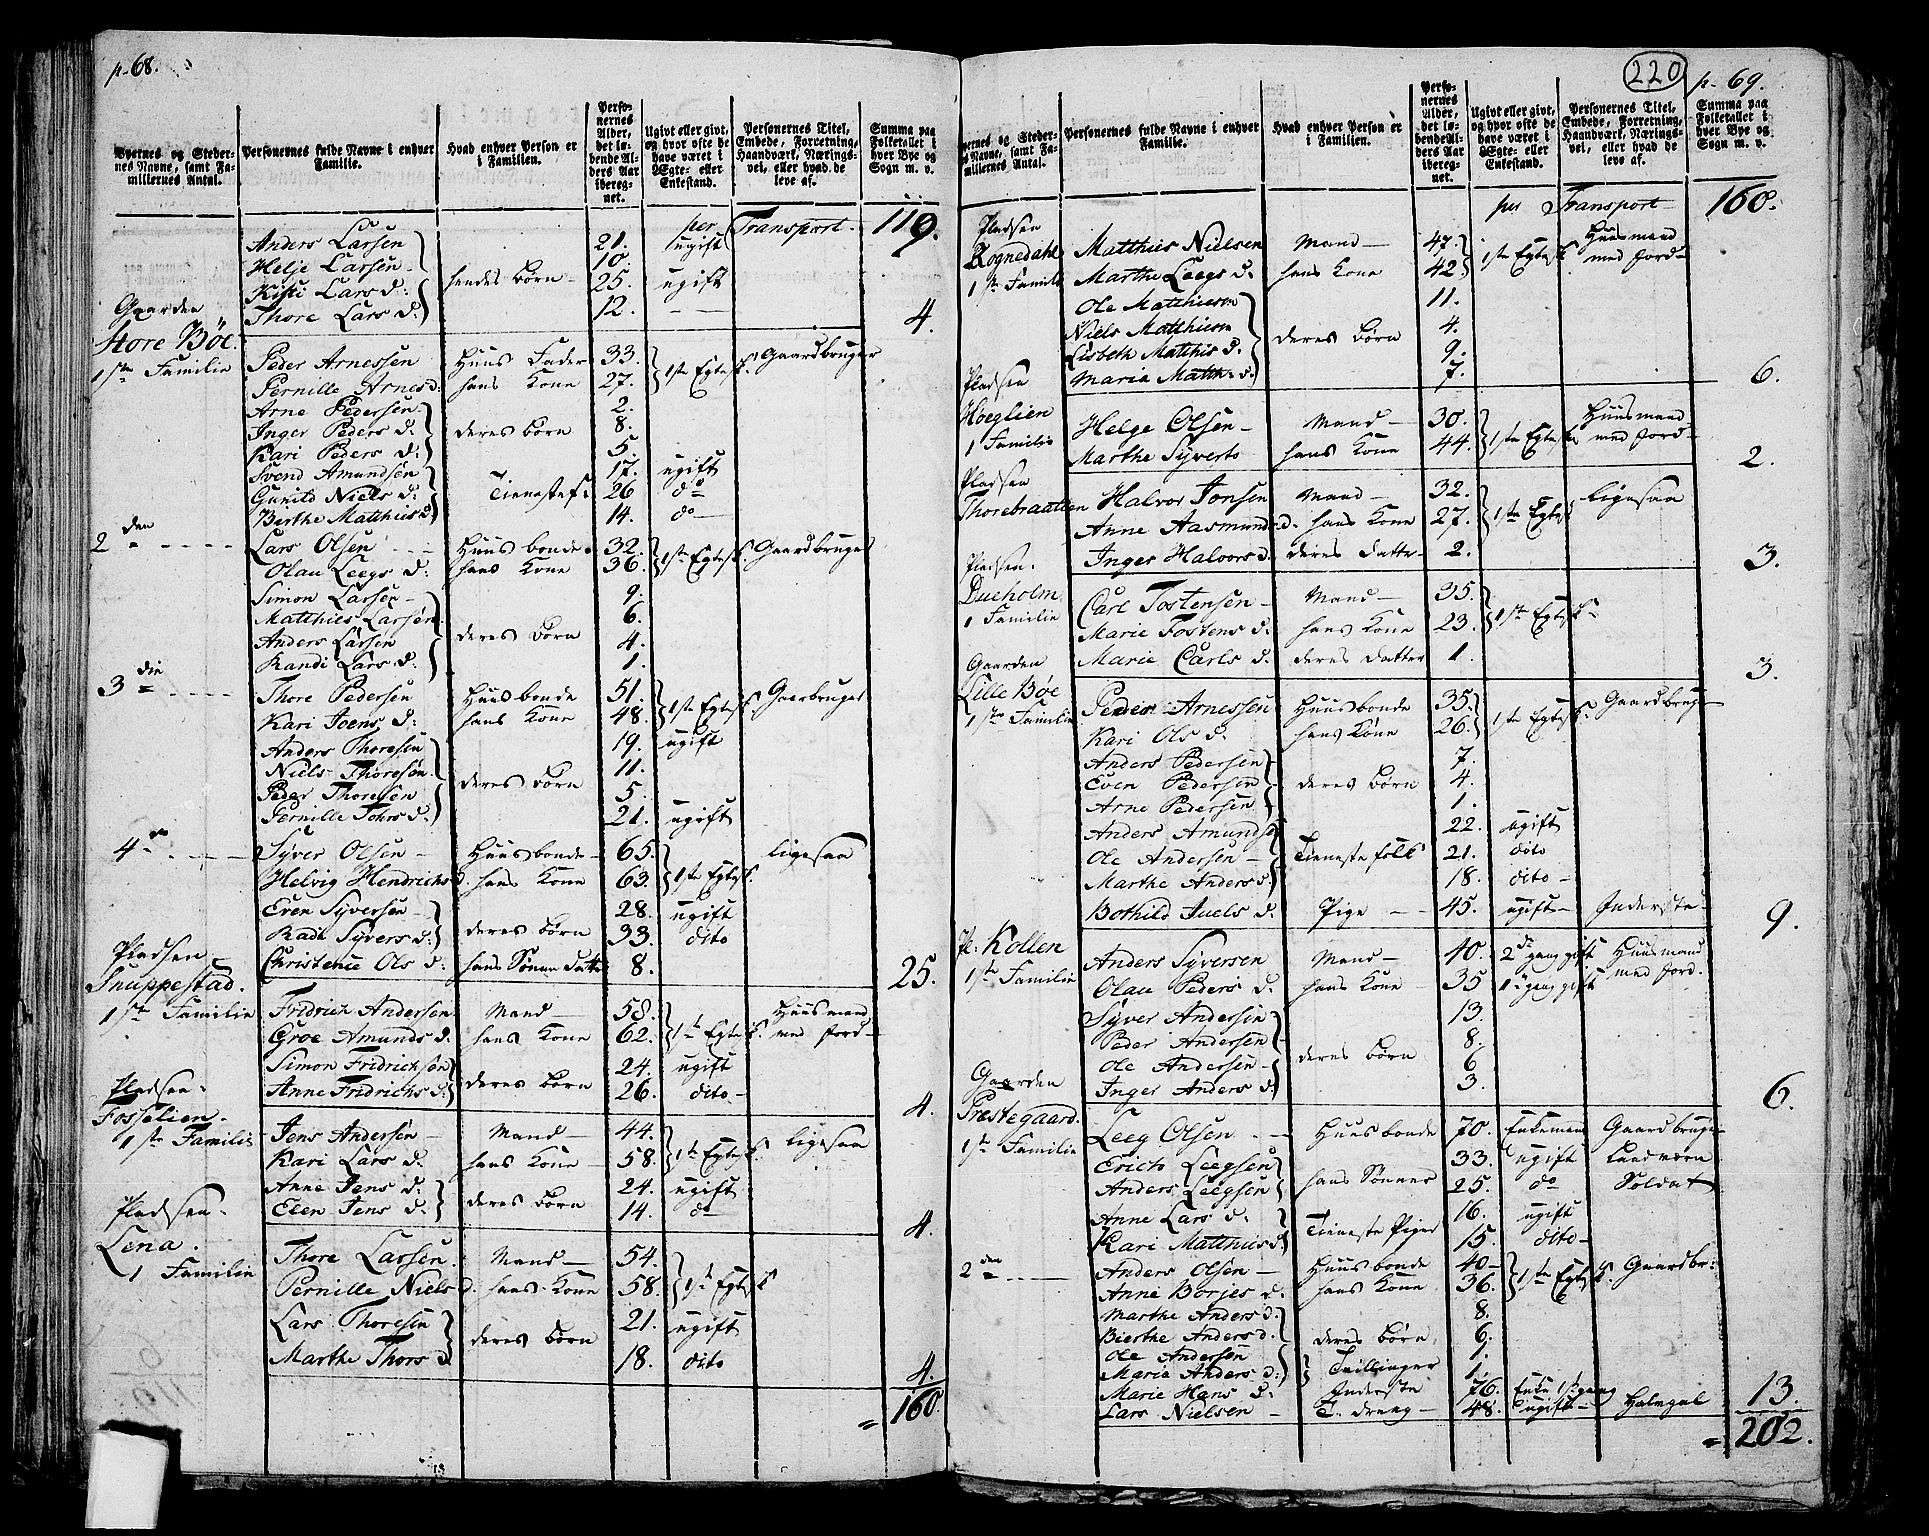 p. 68.
Byernes og Stedernes Navne, samt Familiernes Antal.
Personernes fulde Navne i enhver Familie.
Hvad enhver Person er i Familien.
Personernes Alder, det løbende Alders Aar iberegnet.
Ugivt eller givt, og hvor ofte de have været i Ægte- eller Enkestand.
Personernes Titel, Embede, Forretning, Haandværk, Næringsvei, eller hvad de leve af.
Summa paa Folketallet i hver Bye og Sogn m. v.
per Transport 119.
Anders Larsen 21. ugift
Helje Larsen 10.
Kisti Lars d: hendes Børn 25. ugift
Thore Lars d: 12. 4.
Gaarden
Store Böe.
1ste Familie Peder Arnessen Huus Fader 33. 1ste Egtesk. Gaardbruger
Pernille Arnes d: hans Kone 27.
Arne Pedersen 2.
Inger Peders d: deres Børn 8.
Kari Peders d: 5.
Svend Amundsen 17. ugift
Gunild Niels d: Tienestef: 26 do
Birthe Matthies d 14. do
2den Lars Olsen Huusbonde 32. 1ste Egtesk. Gaardbruger
Olau Leegs d: hans Kone 36.
Simon Larsen 9.
Matthies Larsen 6.
Anders Larsen deres Børn 4.
Randi Lars d. 1.
3die Thore Pedersen Huusbonde 51. 1ste Egtesk. Gaarbruger
Kari Joens d: hans Kone 48.
Anders Thoresen 19. ugift
Niels Thoresøn 11.
Peder Thoresen deres Børn 5.
Pernille Tohrs d. 21. ugift
4de Syver Olsen Huusbonde 65. 1ste Egtesk. ligesaa
Helvig Hendrichs d. hans Kone 63.
Even Syversen 28. ugift
Radi Syvers d: deres Børn 33. dito
Christense Ols d: hans Sønne Datter 8. 25.
Pladsen
Snuppestad.
1ste Familie Fridrich Andersen Mand 58. 1ste Egtesk. Huusmand
Groe Amunds d. hans Kone 62. med Jord
Simon Fridrichsøn 24. ugift
Anne Fridrichs d: deres Børn 26. dito 4.
Pladsen
Fosselien.
1ste Familie Jens Andersen Mand 44. 1ste Egtesk. ligesaa
Kari Lars d: hans Kone 58.
Anne Jens d: 24. ugift
Elen Jens d: deres Børn 14. do 4.
Pladsen
Lena.
1 Familie Thore Larsen Mand 54. 1st Egtesk
Pernille Niels d. hans Kone 58.
Lars Thoresen 21. ugift
Marthe Thors d deres Børn 18. dito 4.
= 160.
220
p. 69.
Byernes og Stedernes Navne, samt Familiernes Antal.
Personernes fulde Navne i enhver Familie.
Hvad enhver Person er i Familien.
Personernes Alder, det løbende Alders Aar iberegnet.
Ugivt eller givt, og hvor ofte de have været i Ægte- eller Enkestand.
Personernes Titel, Embede, Forretning, Haandværk, Næringsvei, eller hvad de leve af.
Summa paa Folketallet i hver Bye og Sogn m. v.
per Transport 160.
Pladsen
Rognedahl Matthies Nielsen Mand 47. 1ste Egtesk Huusmand
1ste Famili Marthe Leegs d. hans Kone 42. med Jord
Ole Matthiesen 11.
Niels Matthiesen 4.
Lisbeth Matthis d. deres Børn 9.
Maria Matth: d. 7. 6.
Pladsen
Hoeglien Helge Olsen Mand 30. 1ste Egtesk Huusmand
1 Familie Marthe Syverts hans Kone 44. med Jord 2.
Pladsen
Thorebraatten Halvor Jonsen Mand 32. 1ste Egtesk ligesaa
Anne Aasmunds d. hans Kone 27.
Inger Halvors d. deres Datter 2. 3.
Pladsen.
Dueholm Carl Tostensen Mand 35. 1ste Egtesk
1 Familie Marie Tostens d. hans Kone 23.
Marie Carls d. deres Datter 1. 3.
Gaarden
Lille Böe
1ste Familie Peder Arnessen Huusbonde 35. 1ste Egtesk. Gaardbrug
Kari Ols d. hans Kone 26.
Anders Pedersen 7.
Even Pedersen deres Børn 4.
Arne Pedersen 1.
Anders Amundsen 22. ugift
Ole Andersen Tieneste folk 21. dito
Marthe Anders d. 18. dito
Bothild Juels d. Pige 45. ugift Inderste 9.
Pl: Kollen Anders Syversen Mand 40. 2de gang gift Huusmand
1ste Familie Olau Peders d. hans Kone 35 1. gang gift med Jord.
Syver Andersen 13.
Peder Andersen 8.
Ole Andersen deres Børn 6
Inger Anders d. 3. 6.
Gaarden
Prestegaard.
1ste Familie Leeg Olsen Huusbonde 70. Enkemand Gaardbruge
Erich Leegsen 33. ugift Landværn
Anders Leegsen hans Sønner 25. do Soldat
Anne Lars d. 16. ugift
Kari Matthies d. Tieneste Piger 15. dito
2den Anders Olsen Huusbonde 40 1ste Egtesk. Gaardbr:
Anne Borjes d. hans Kone 36.
Marthe Anders d. 8.
Bierthe Anders d. deres Børn 6.
Ole Andersen 1.
Maria Anders d: Tvillinger 1.
Marie Hans d. Inderste 76. Enke 1ste gang
Lars Nielsen T. dreng 48. ugift 13.
= 202.